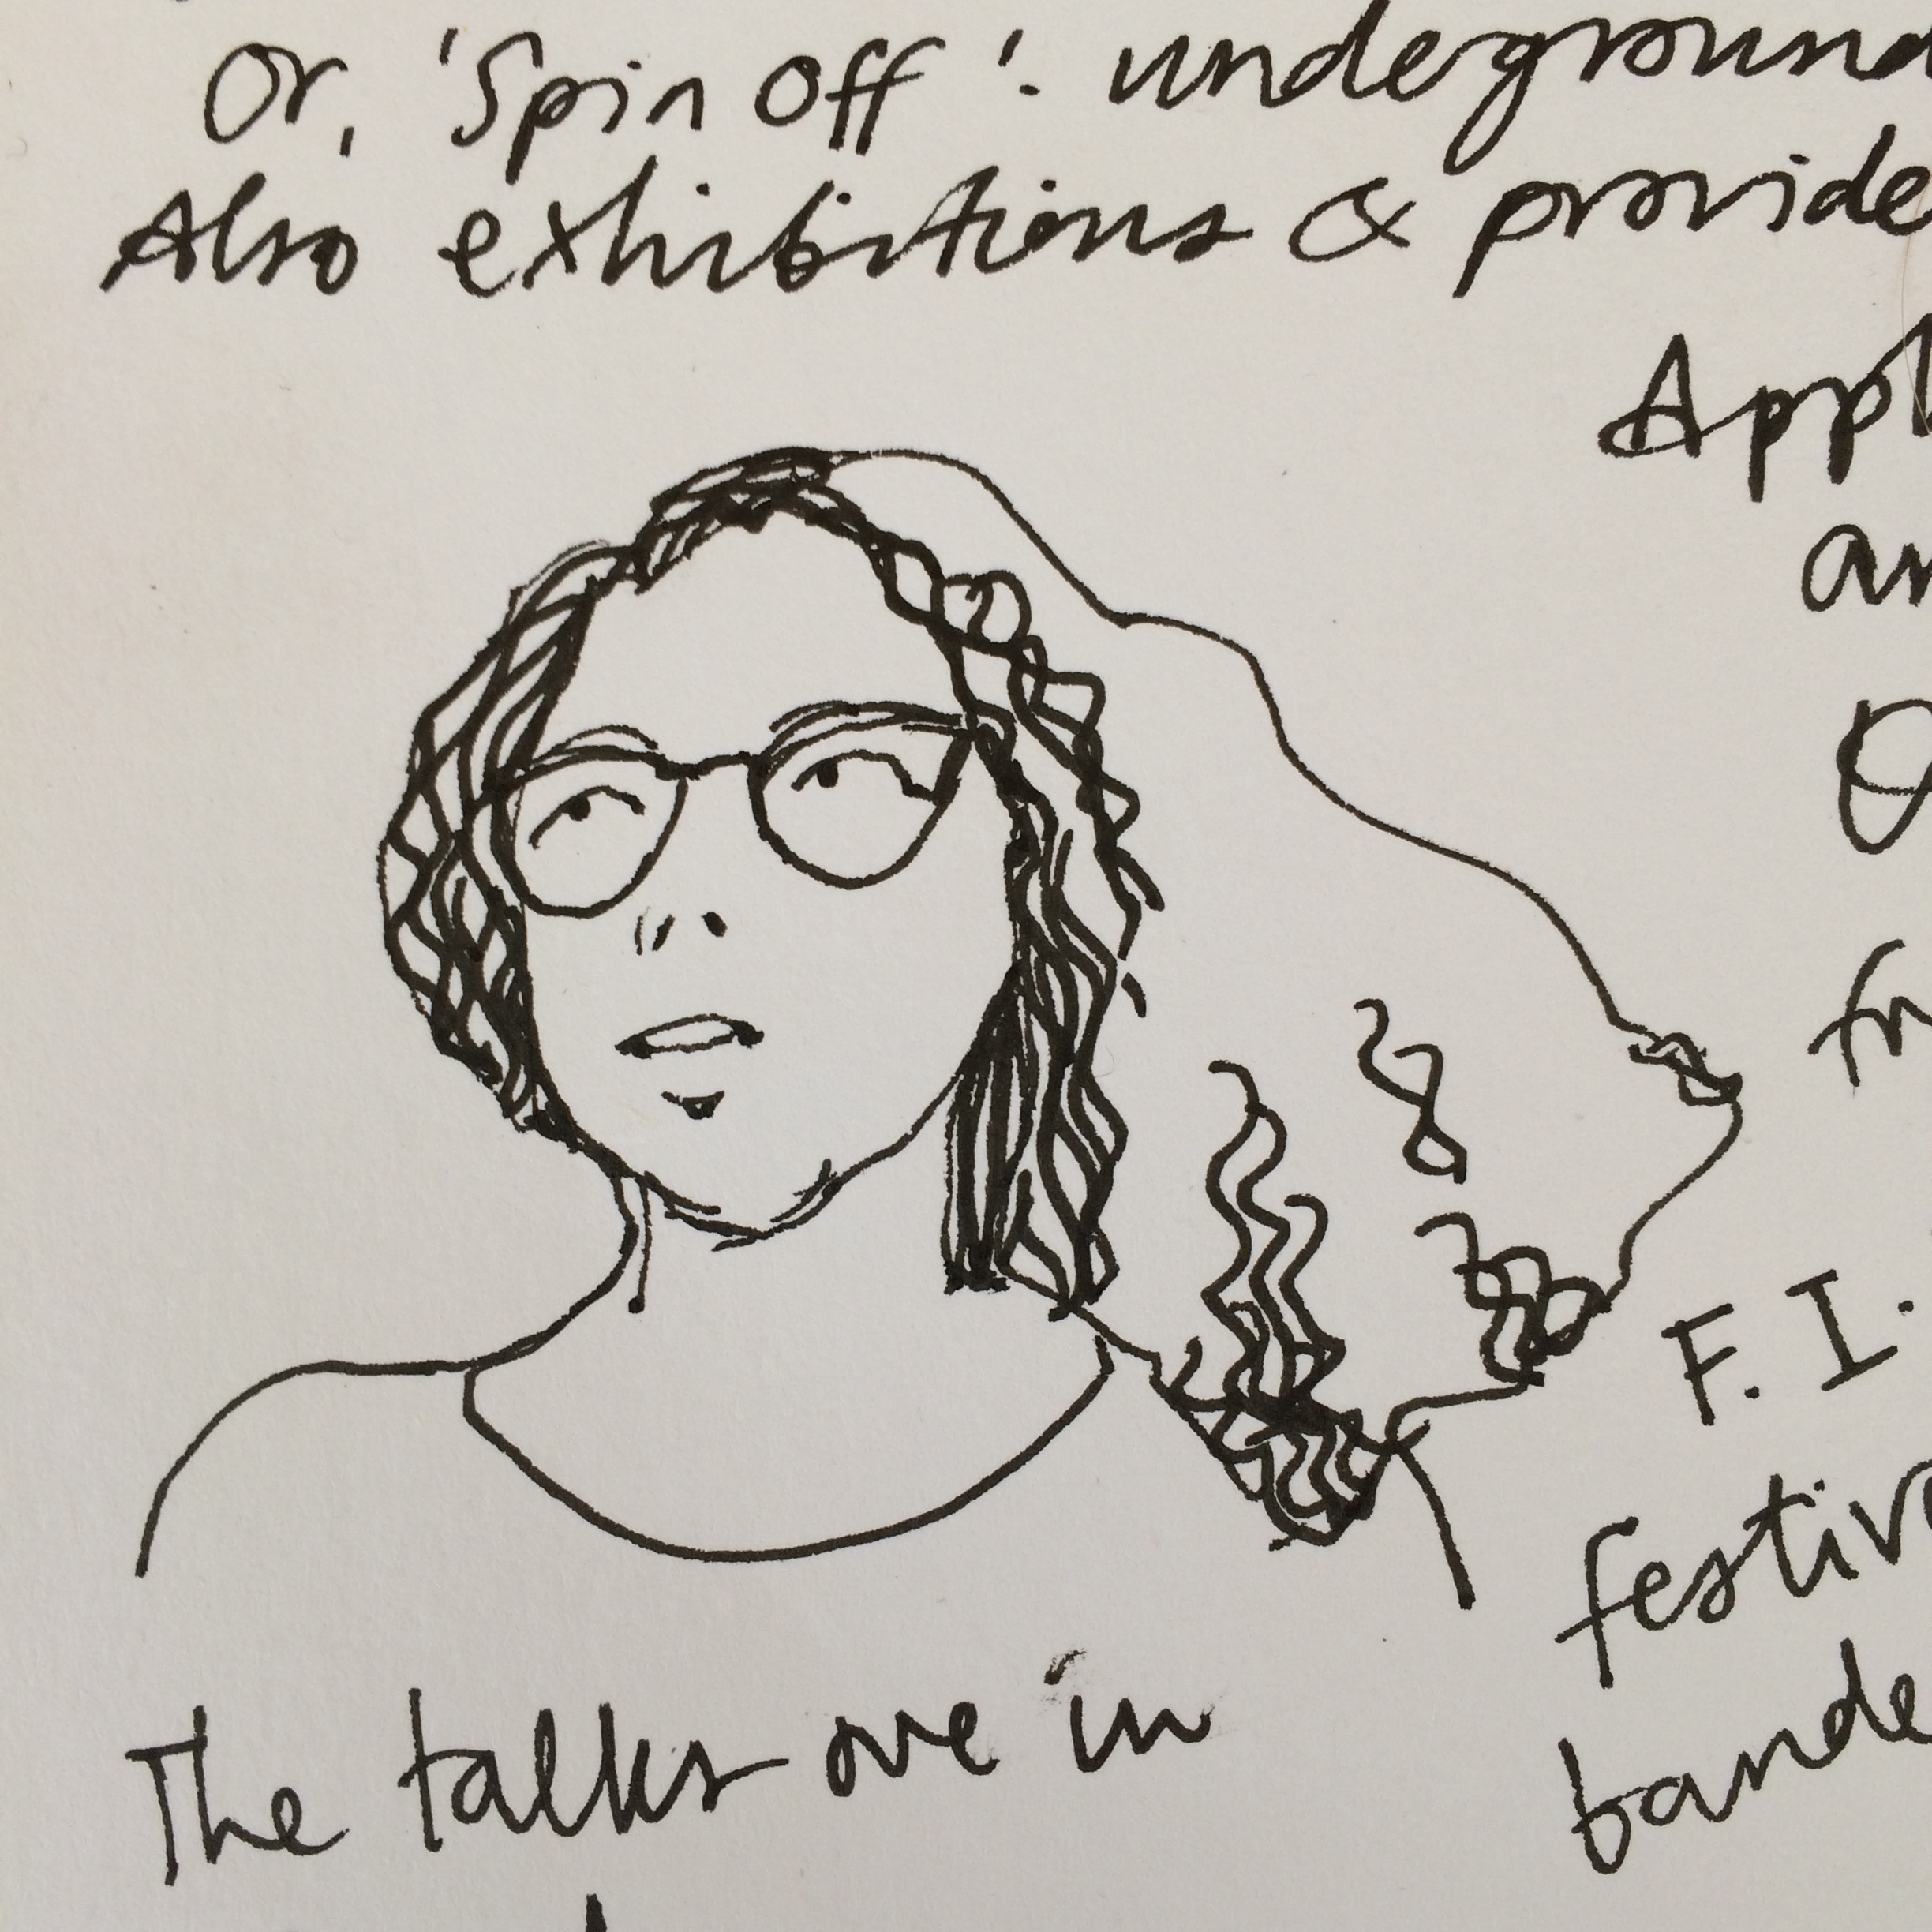 Or, 'Spin Off'. underground
Also exhibitions & provide
Appl
an
fr
F. I.
festiv
bande
The talks are in